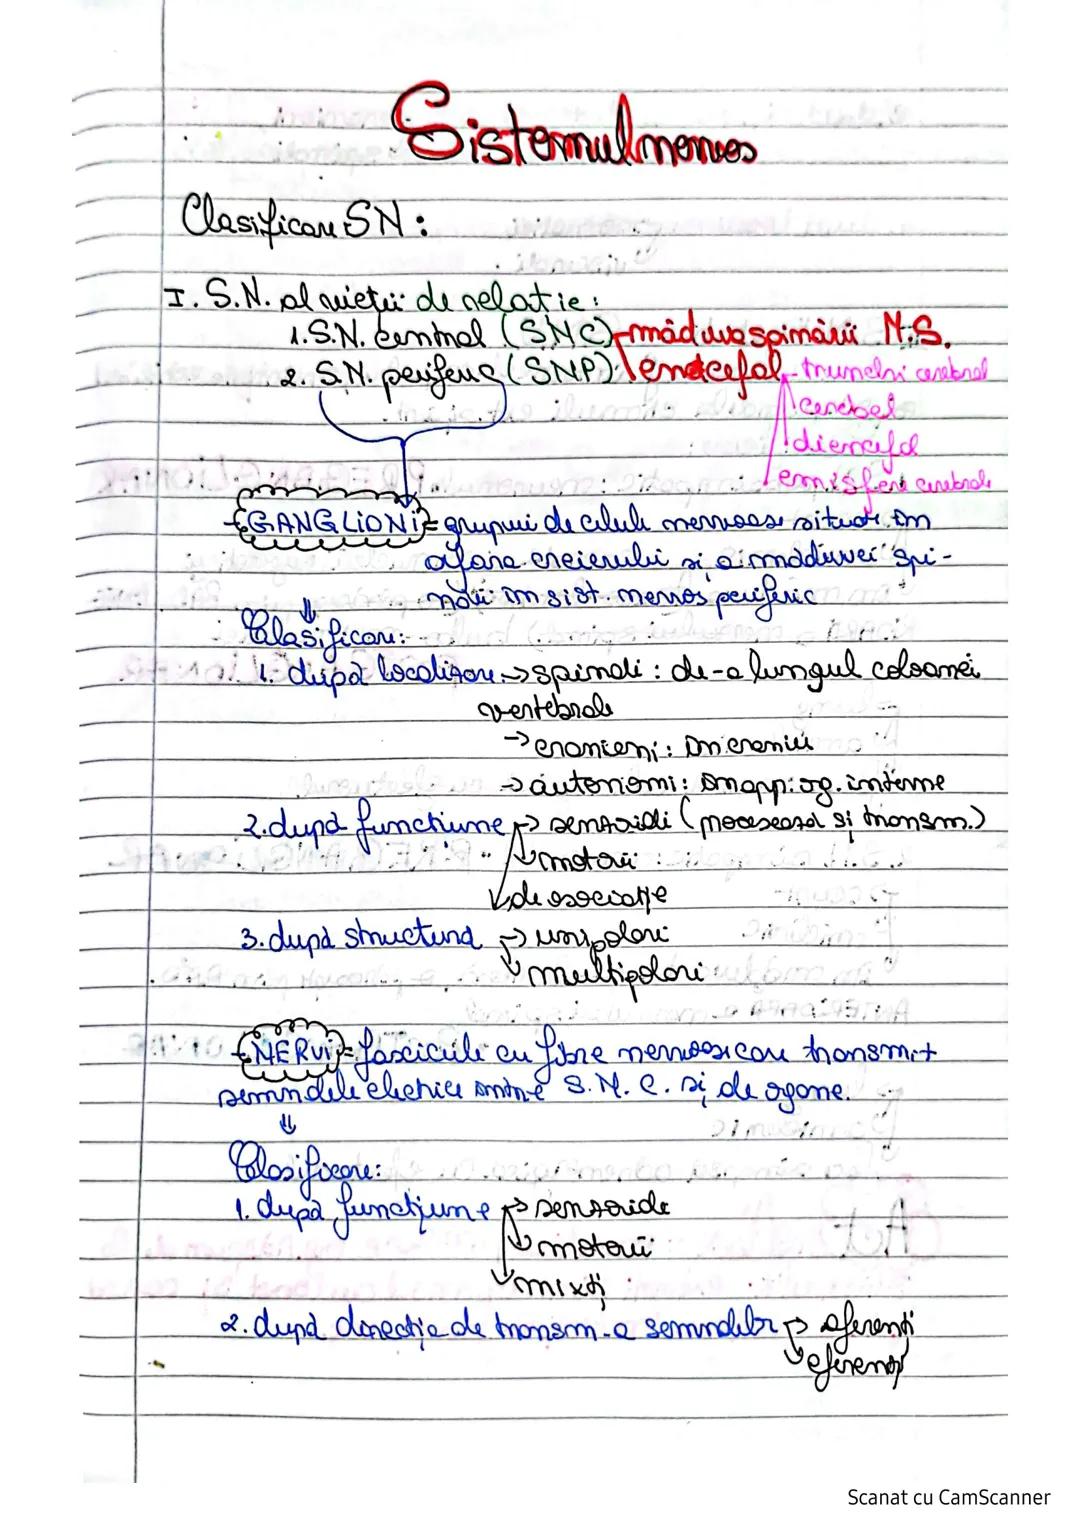 Sistemul nervos
Clasificare SN:
I. S.N. al vieții de relație:
1. S.N. central (SNC) măduva spinării M.S.
2. S.N. periferic (SNP): encefal trunchi cerebral
cerebel
diencefal
emisfere cerebrale
-GANGLIONI = grupuri de celule nervoase situate în
afara creierului și a măduvei spi-
nării în sist. nervos periferic
⇓
Clasificare:
1. după localizare → spinali: de-a lungul coloanei
vertebrale
→ cranieni: în craniu
→ autonomi: în app: og. interne
2. după funcțiune → senzoriali (procesează și transm.)
→ motorii
→ de asociație
3. după structură → unipolari
→ multipolari
-NERVI = fascicule cu fibre nervoase care transmit
semnalele electrice între S.N.C. și de ogane.
⇓
Clasificare:
1. după funcțiune → senzoriale
→ motorii
→ micști
2. după direcția de transm. a semnalelor → aferenți
→ eferenți
Scanat cu CamScanner